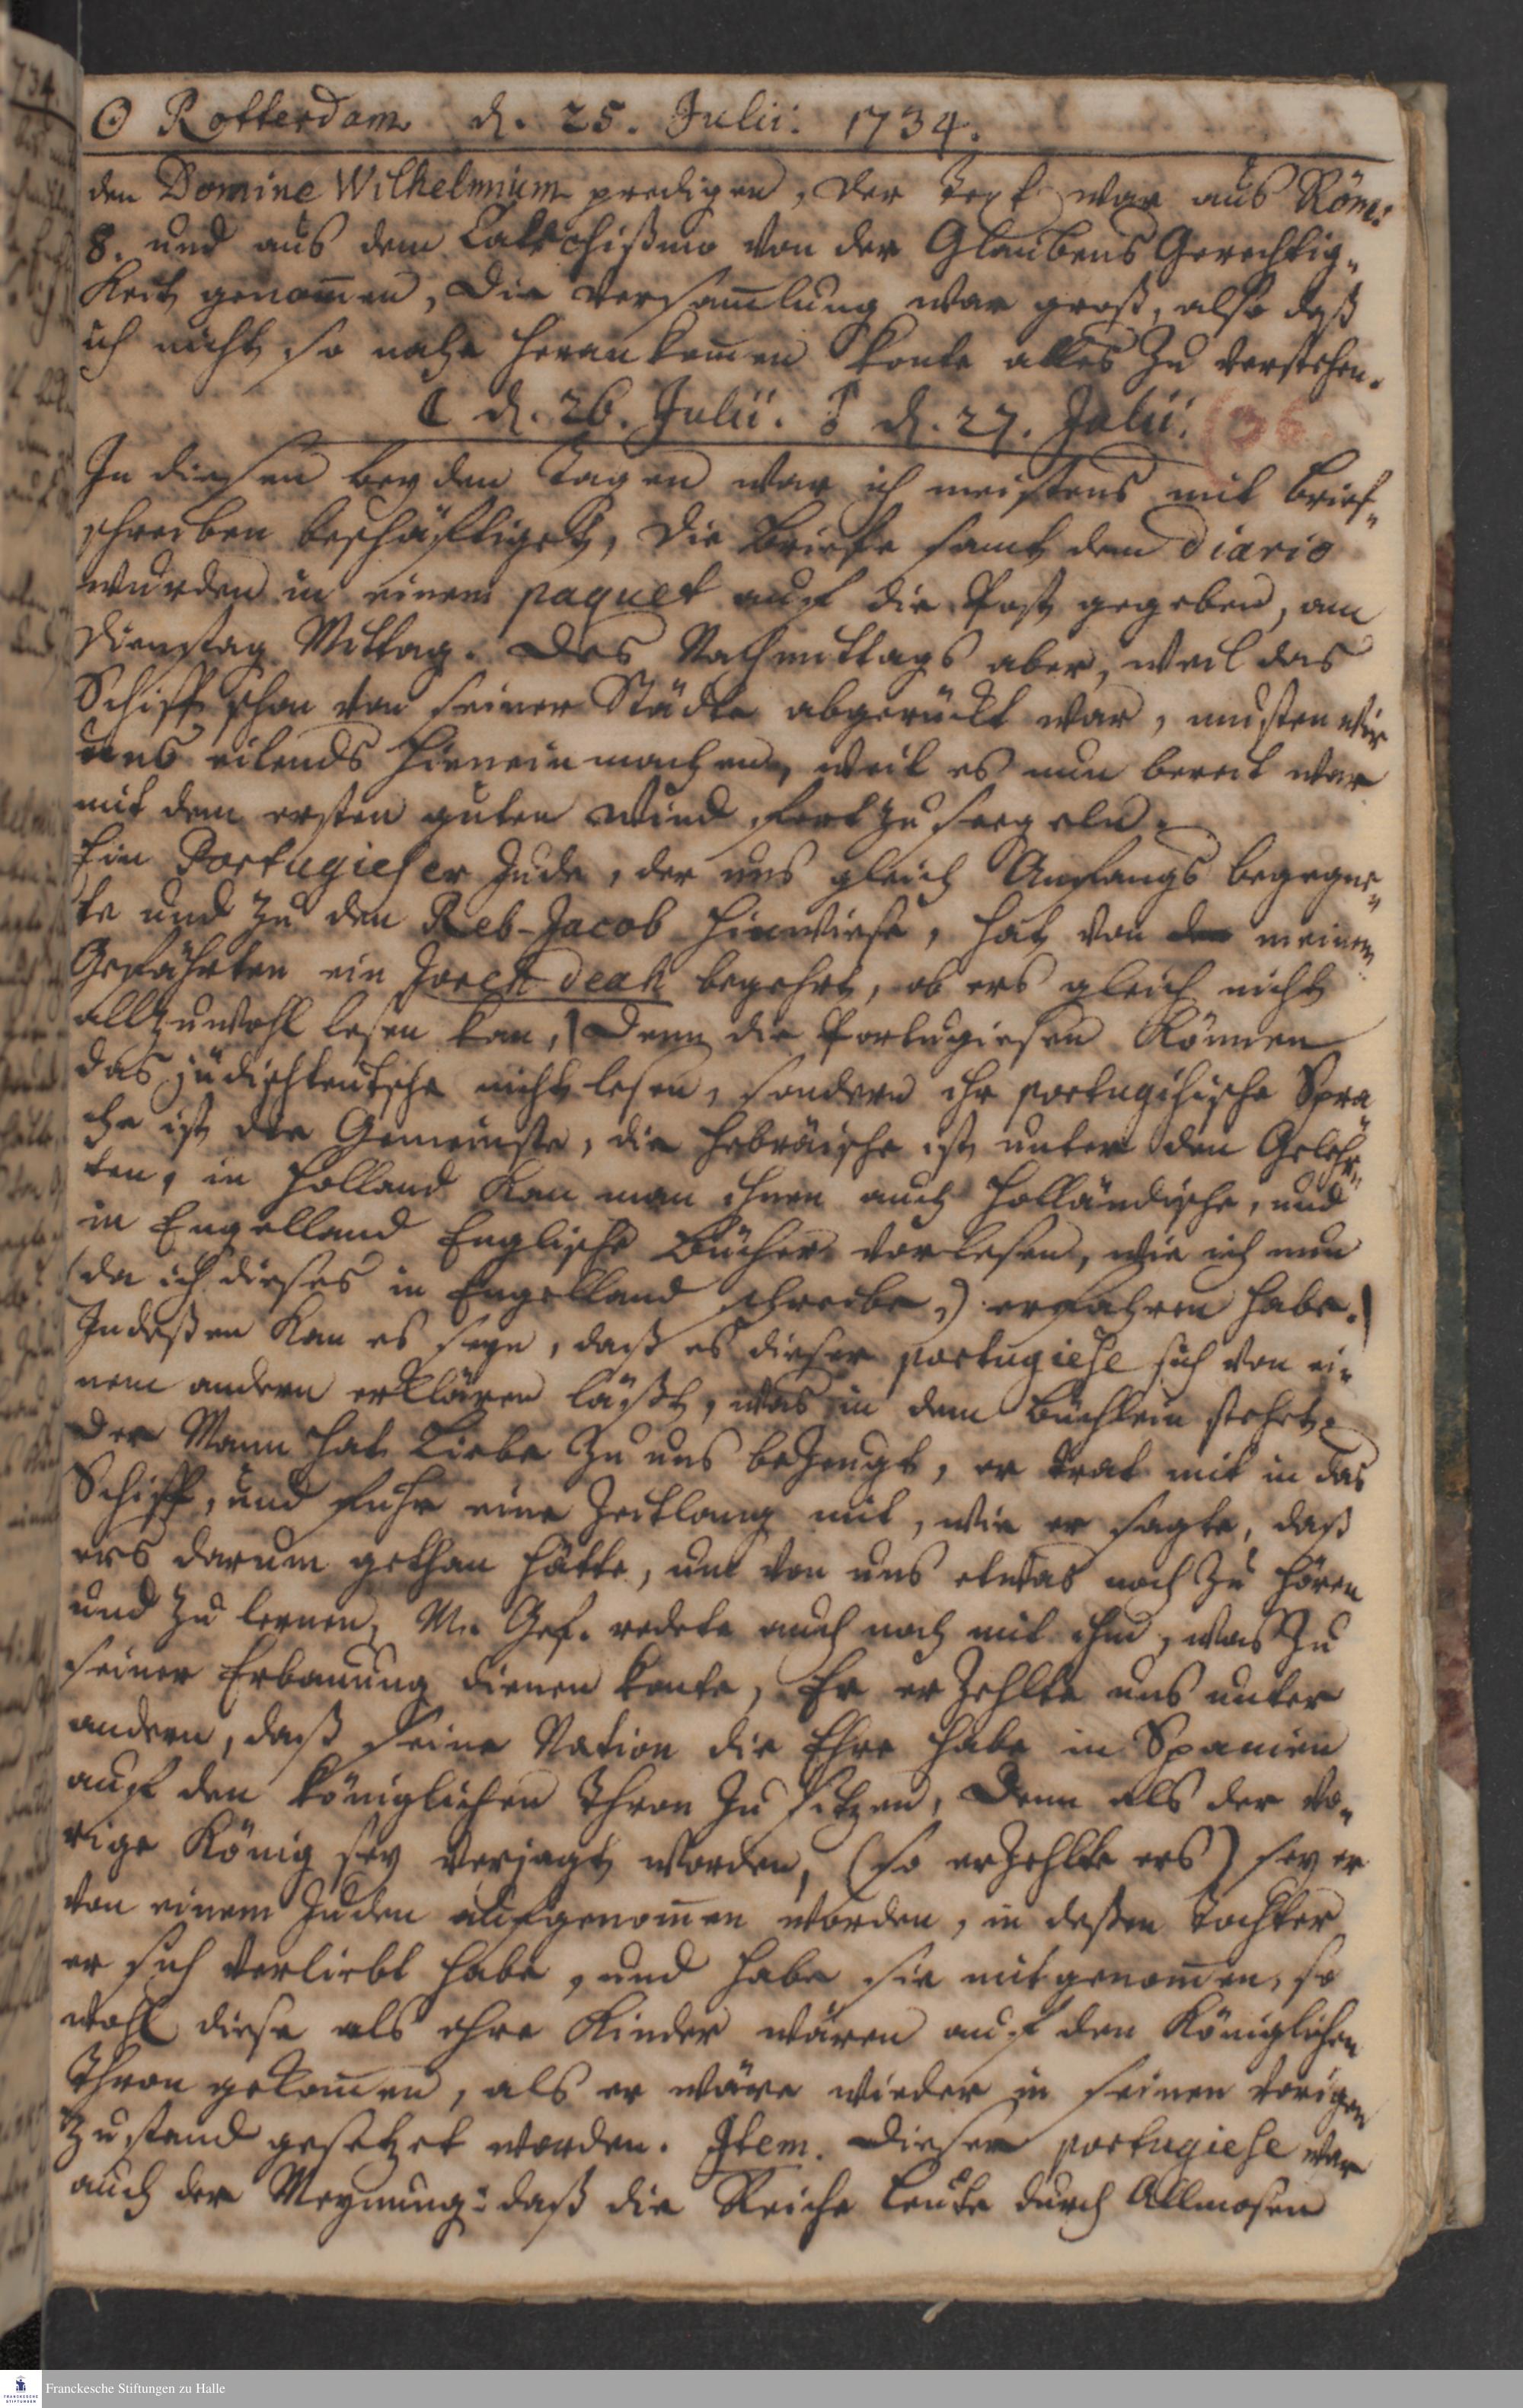 ☉ Rotterdam d. 25. Julii. 1734.
den Domine Wilhelmium predigen, der text war aus Röm:
8. und aus dem Catechißmo von der Glaubens Gerechtig-
keit genom̄en, die Versam̄lung war groß, also daß
ich nicht so nahe herankom̄en konte alles zu verstehen.
☾ d. 26. Julii. ♂ d. 27. Julii.
In diesen beyden Tagen war ich meistens mit Brief-
schreiben beschäfftiget, die Briefe samt dem diario
wurden in einem paquet auf die Post gegeben, am
Dienstag Mittag. Des Nachmittags aber, weil das
Schiff schon von seiner Städte abgerückt war, musten wir
uns eilends hineinmachen, weil es nun bereit war
mit dem ersten guten Wind fortzuseegeln.
Ein Portugieser Jude, der uns gleich Anfangs begegne-
te und zu den Reb-Jacob hinwiese, hat von meinem
Gefährten ein Joreh deah begehrt, ob ers gleich nicht
allzuwohl lesen kan, denn die Portugiesen können
das jüdischteutsche nicht lesen, sondern ihr portugihische Spra-
che ist die Gemeinste, die hebräische ist unter den Gelehr-
ten, in Holland kan man ihnen auch Holländische, und
in Engelland Englische Bücher vorlesen, wie ich nun
(da ich dieses in Engelland schreibe,) erfahren habe.
Indeßen kan es seyn, daß es dieser portugiese sich von ei-
nem andern erklären läßt, was in dem Büchlein stehet.
Der Mann hat Liebe zu uns bezeugt, er trat mit in das
Schiff, und fuhr eine Zeitlang mit, wie er sagte, daß
ers darum gethan hätte, um von uns etwas noch zu hören
und zu lernen, M. Gef. redete auch noch mit ihm, was zu
seiner Erbauung dienen konte, Er erzehlte uns unter
andern, daß seine Nation die Ehre habe in Spanien
auf den königlichen Thron zu sitzen, denn als der vo-
rige König sey verjagt worden, (so erzehlte ers) sey er
von einem Juden aufgenom̄en worden, in deßen Tochter
er sich verliebt habe, und habe sie mitgenom̄en, so
wohl diese als ihre Kinder wären auf den Königlichen
Thron gekom̄en, als er wäre wieder in seinen vorigen
Zustand gesetzet worden. Item. Dieser portugiese war
auch der Meynung: daß die Reiche Leute durch Allmosen
Franckesche Stiftungen zu Halle